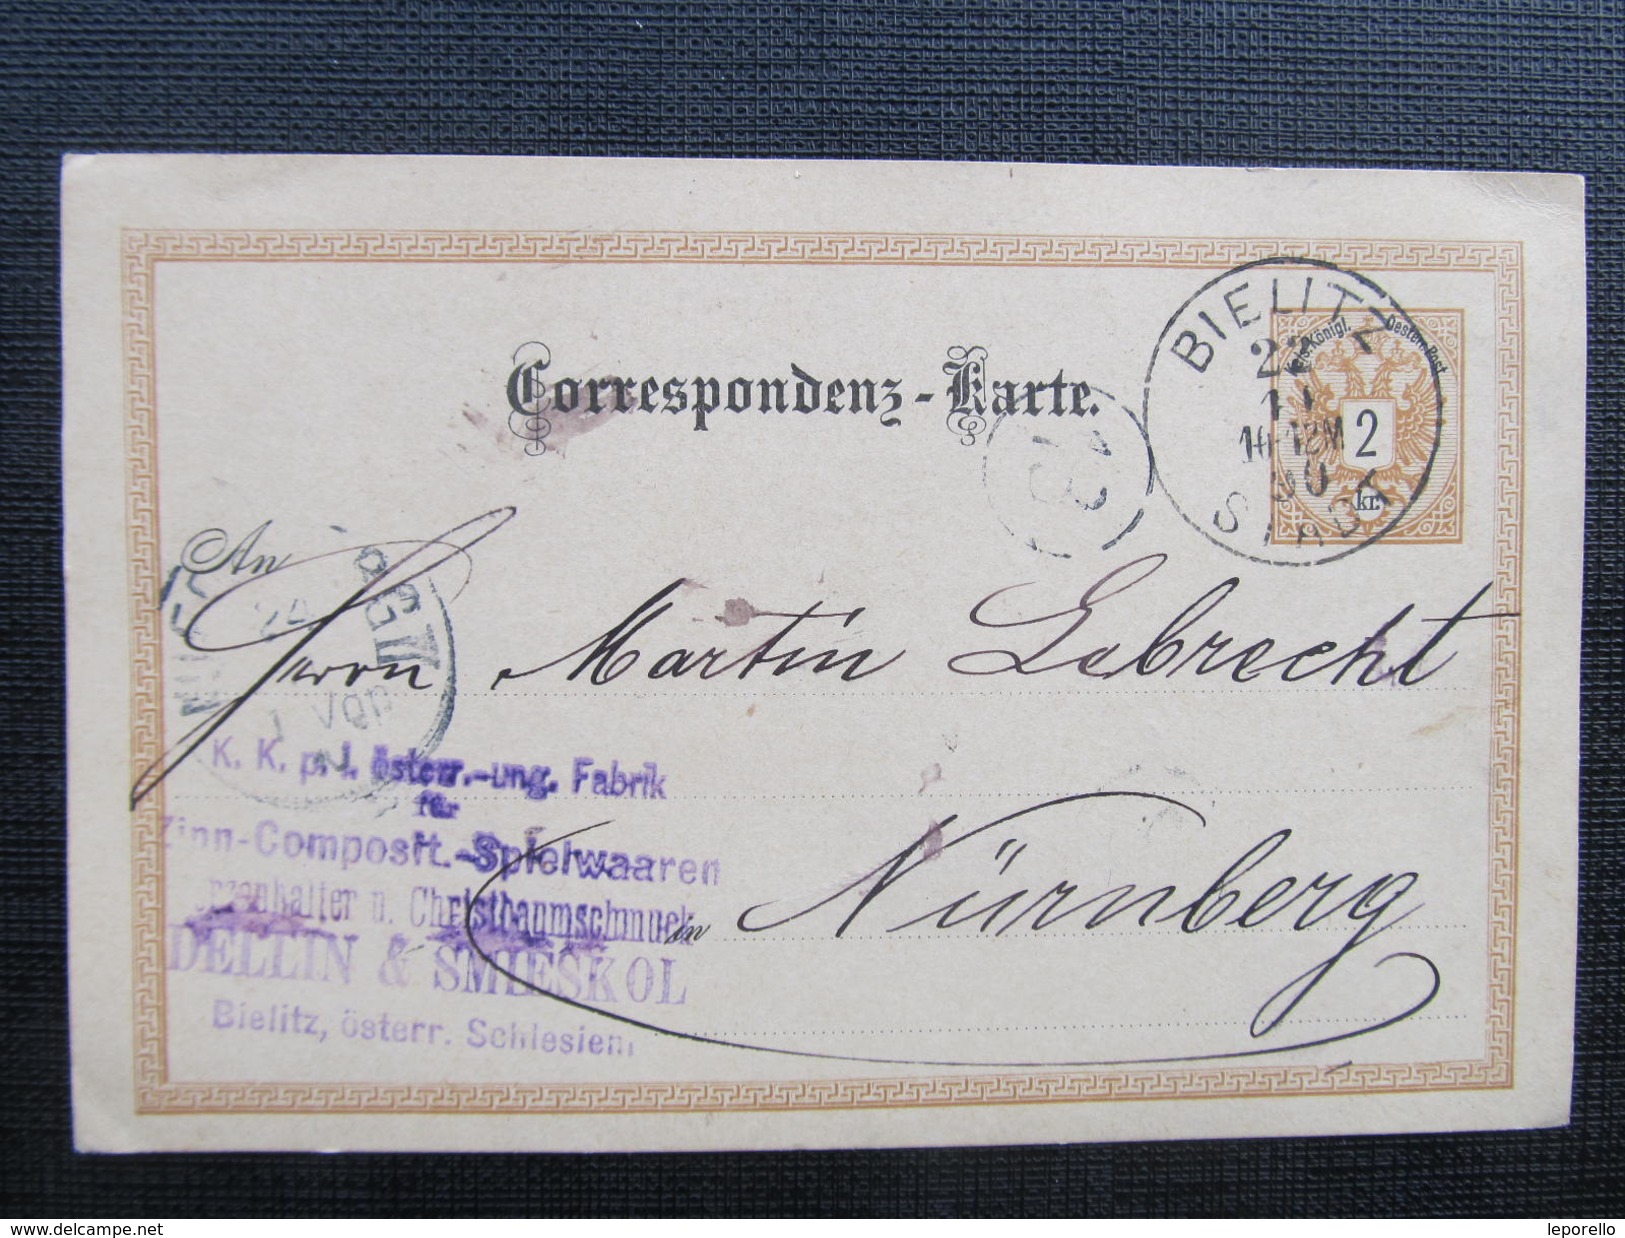 Correspondenz-Karte.
BIELITZ
22
11
10-12M
90
STADT
Kais. Königl. Oesterr. Post
2
kr.
An
Herrn Martin Lebrecht
K. K. p. i. österr.-ung. Fabrik
für
Zinn-Composit.-Spielwaaren
Kerzenhalter u. Christbaumschmuck
DELLIN & SMIESKOL
Bielitz, österr. Schlesien.
in Nürnberg
www.delcampe.net
leporello